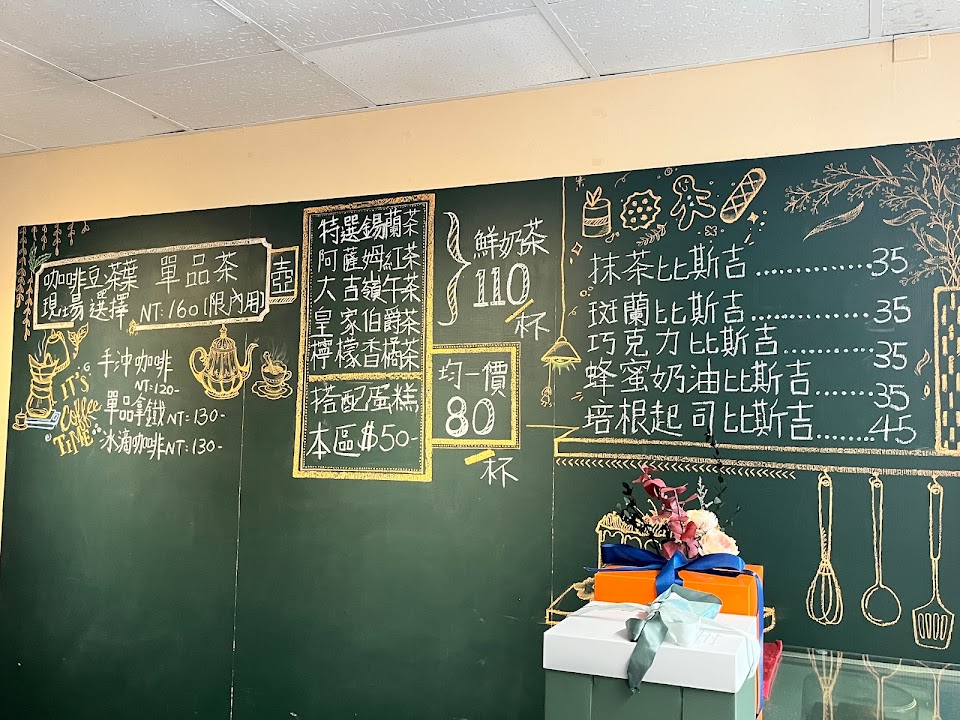 咖啡豆茶葉 單品茶 壺
現場選擇 NT:160(限內用)
手沖咖啡
NT:120-
單品拿鐵 NT:130-
冰滴咖啡 NT:130-
IT'S
Coffee
TIME
特選錫蘭茶
阿薩姆紅茶
大吉嶺午茶
皇家伯爵茶
檸檬香橘茶
搭配蛋糕
本區$50-
鮮奶茶
110
杯
均一價
80
杯
抹茶比斯吉..............35
斑蘭比斯吉..............35
巧克力比斯吉........35
蜂蜜奶油比斯吉.....35
培根起司比斯吉.......45